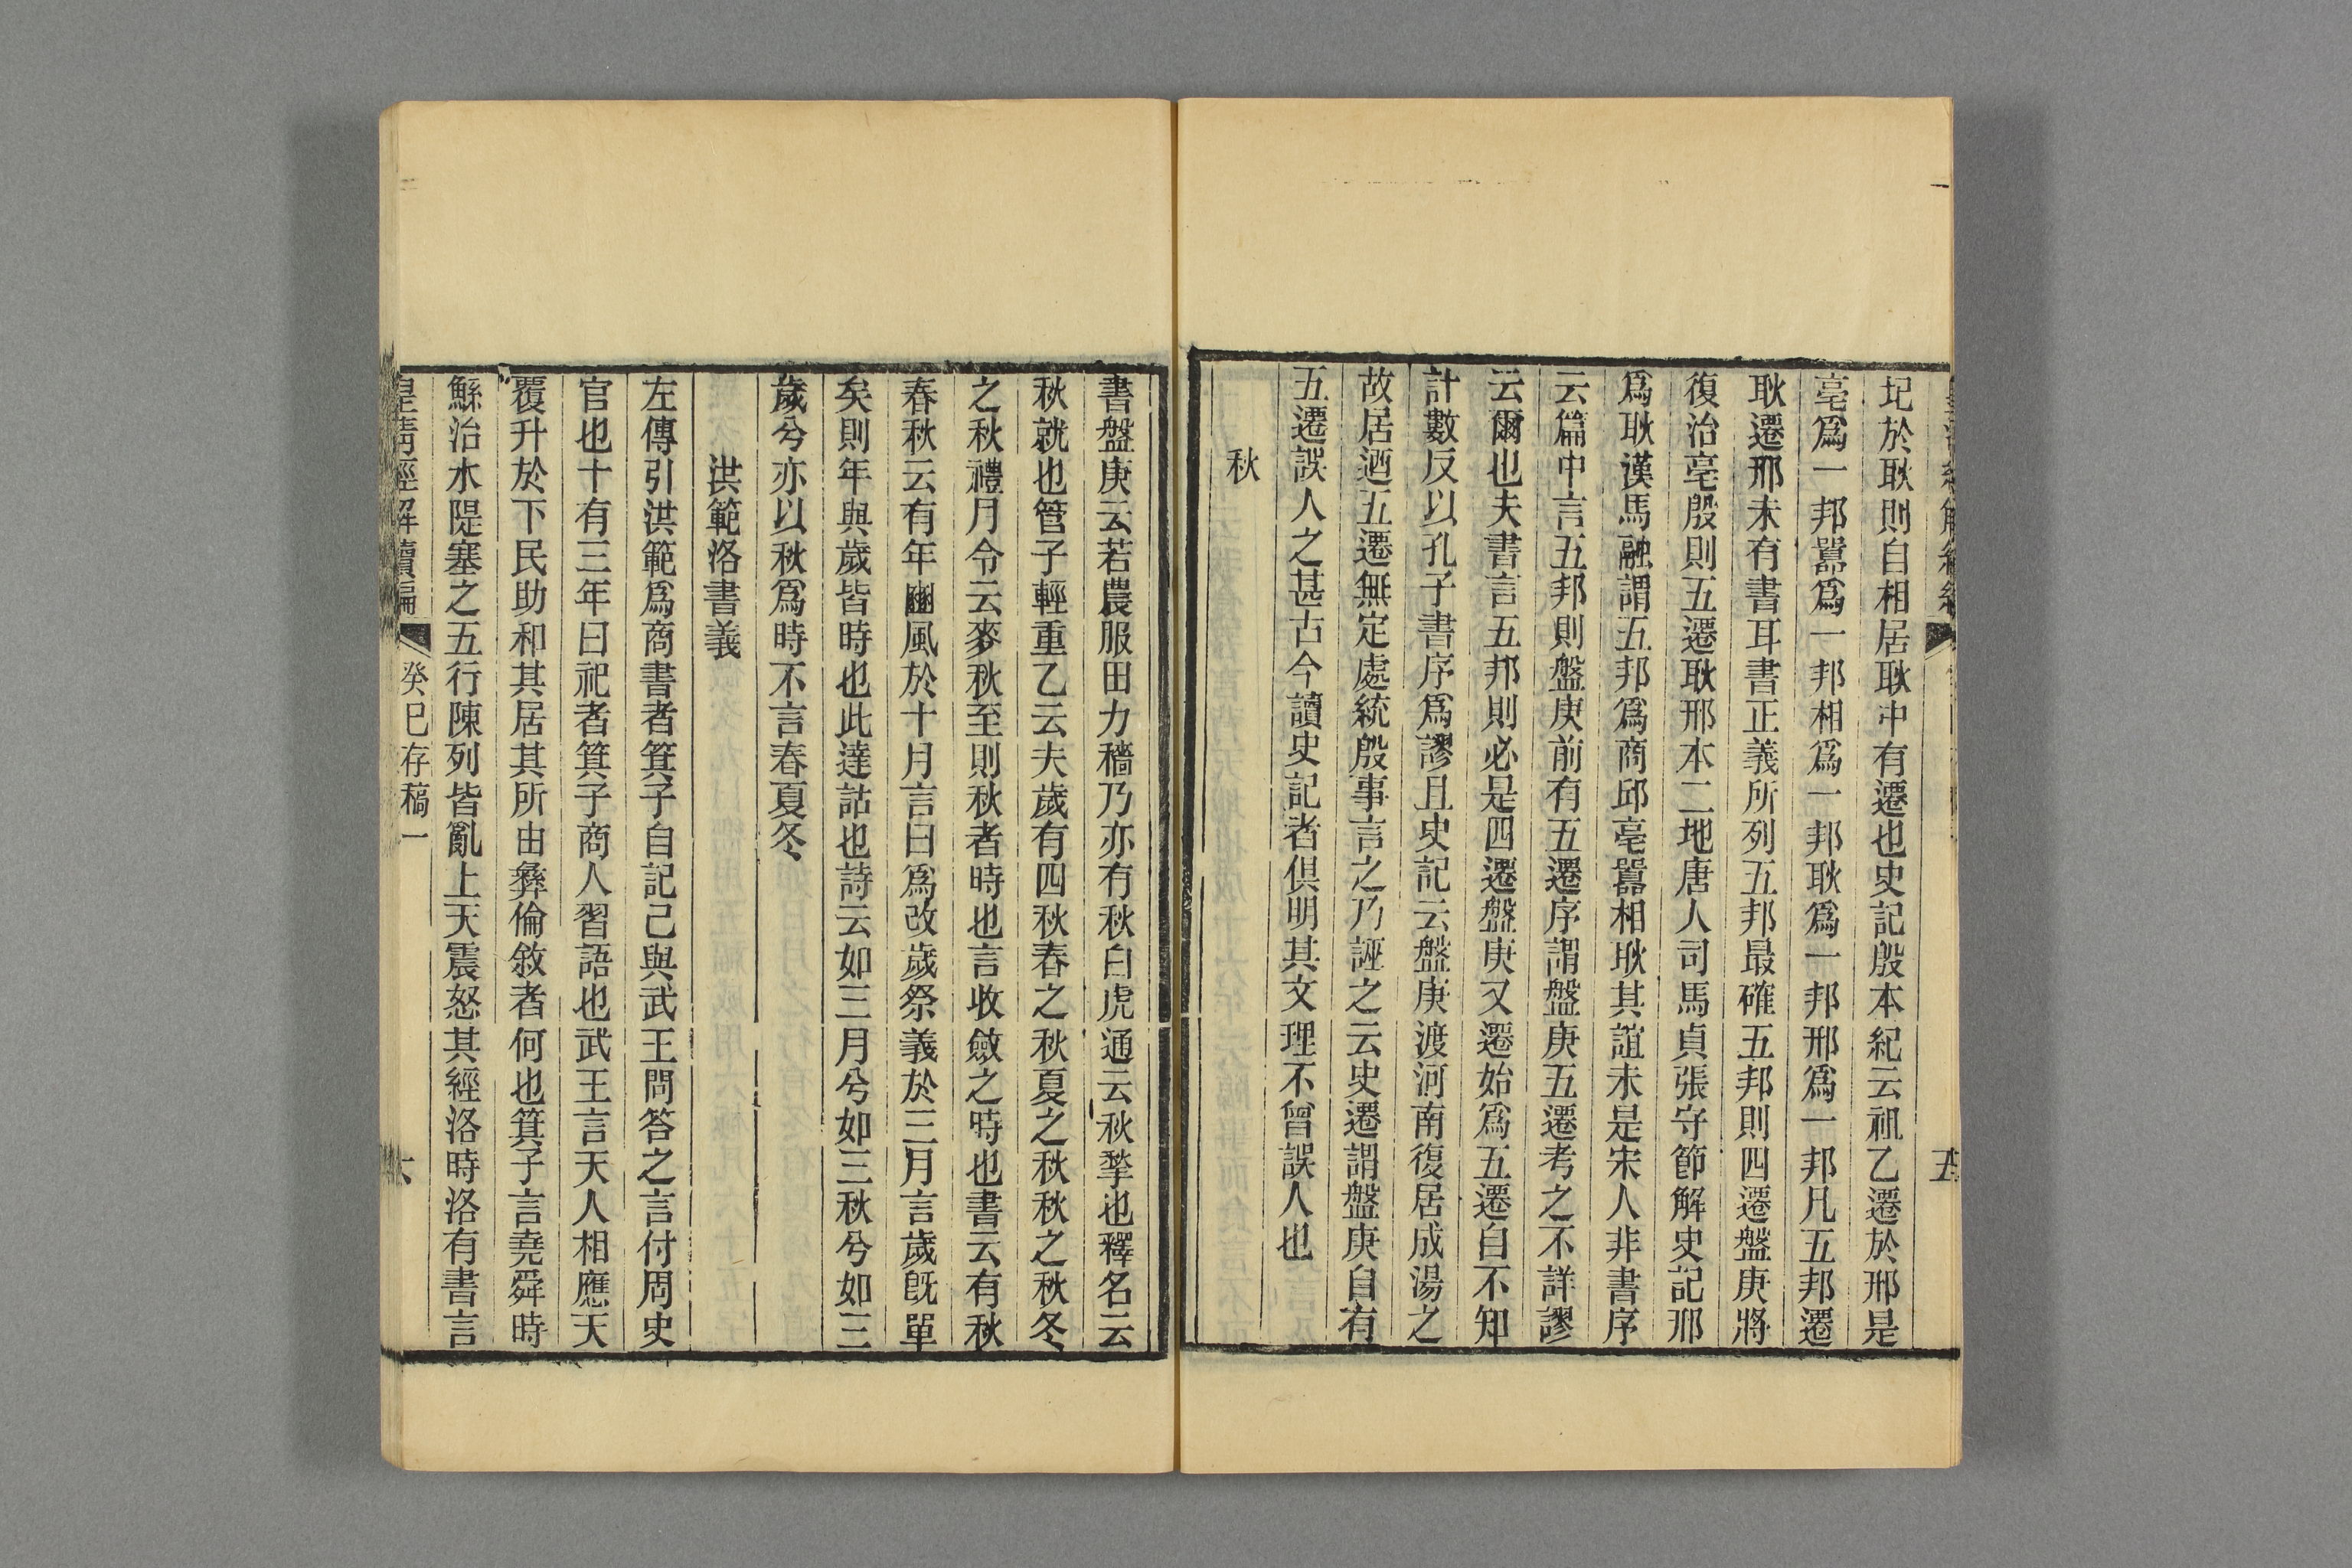 五
圮於耿則自相居耿中有遷也史記殷本紀云祖乙遷於邢是
亳爲一邦囂爲一邦相爲一邦耿爲一邦邢爲一邦凡五邦遷
耿遷邢未有書耳書正義所列五邦最確五邦則四遷盤庚將
復治亳殷則五遷耿邢本二地唐人司馬貞張守節解史記邢
爲耿漢馬融謂五邦爲商邱亳囂相耿其誼未是宋人非書序
云篇中言五邦則盤庚前有五遷序謂盤庚五遷考之不詳謬
云爾也夫書言五邦則必是四遷盤庚又遷始爲五遷自不知
計數反以孔子書序爲謬且史記云盤庚渡河南復居成湯之
故居迺五遷無定處統殷事言之乃誣之云史遷謂盤庚自有
五遷誤人之甚古今讀史記者俱明其文理不曾誤人也
秋
書盤庚云若農服田力穡乃亦有秋白虎通云秋揫也釋名云
秋就也管子輕重乙云夫歲有四秋春之秋夏之秋秋之秋冬
之秋禮月令云麥秋至則秋者時也言收斂之時也書云有秋
春秋云有年豳風於十月言曰爲改歲祭義於三月言歲旣單
矣則年與歲皆時也此達詁也詩云如三月兮如三秋兮如三
歲兮亦以秋爲時不言春夏冬
洪範洛書義
左傳引洪範爲商書者箕子自記己與武王問答之言付周史
官也十有三年曰祀者箕子商人習語也武王言天人相應天
覆升於下民助和其居其所由彝倫敘者何也箕子言堯舜時
鯀治水隄塞之五行陳列皆亂上天震怒其經洛時洛有書言
皇清經解續編 癸巳存稿一 六